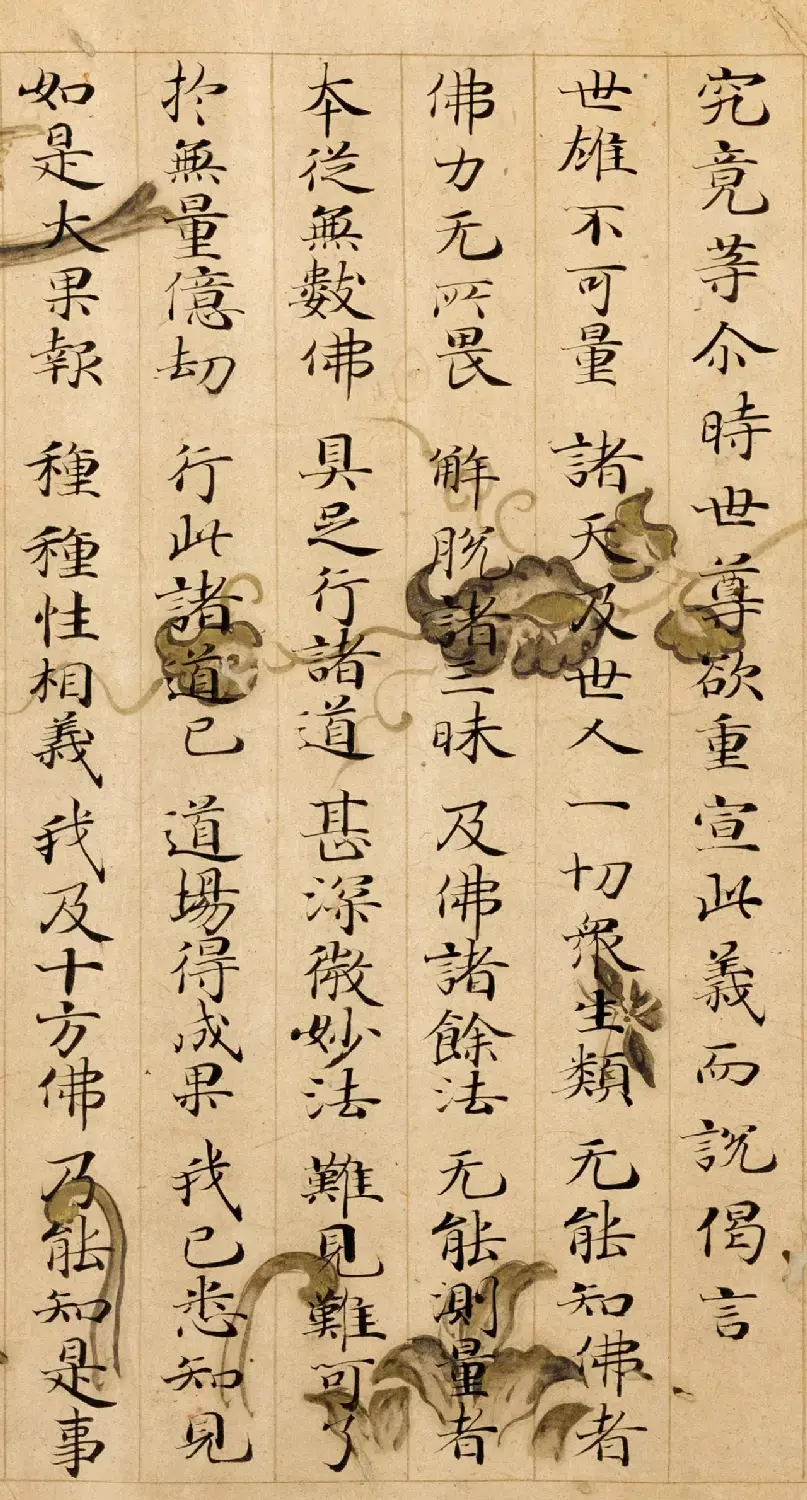 究竟等尒時世尊欲重宣此義而說偈言
世雄不可量 諸天及世人 一切衆生類 无能知佛者
佛力无所畏 解脱諸三昧 及佛諸餘法 无能測量者
本從無數佛 具足行諸道 甚深微妙法 難見難可了
於無量億劫 行此諸道已 道場得成果 我已悉知見
如是大果報 種種性相義 我及十方佛 乃能知是事